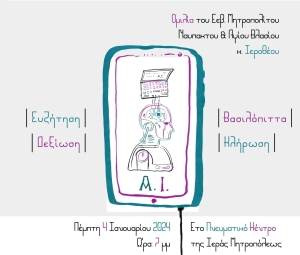 Ομιλία του Σεβ. Μητροπολίτου
Ναυπάκτου & Αγίου Βλασίου
κ. Ιεροθέου
Συζήτηση
Δεξίωση
Βασιλόπιττα
Κλήρωση
A.I.
Πέμπτη 4 Ιανουαρίου 2024
Ώρα: 7 μμ
Στο Πνευματικό Κέντρο
της Ιεράς Μητροπόλεως